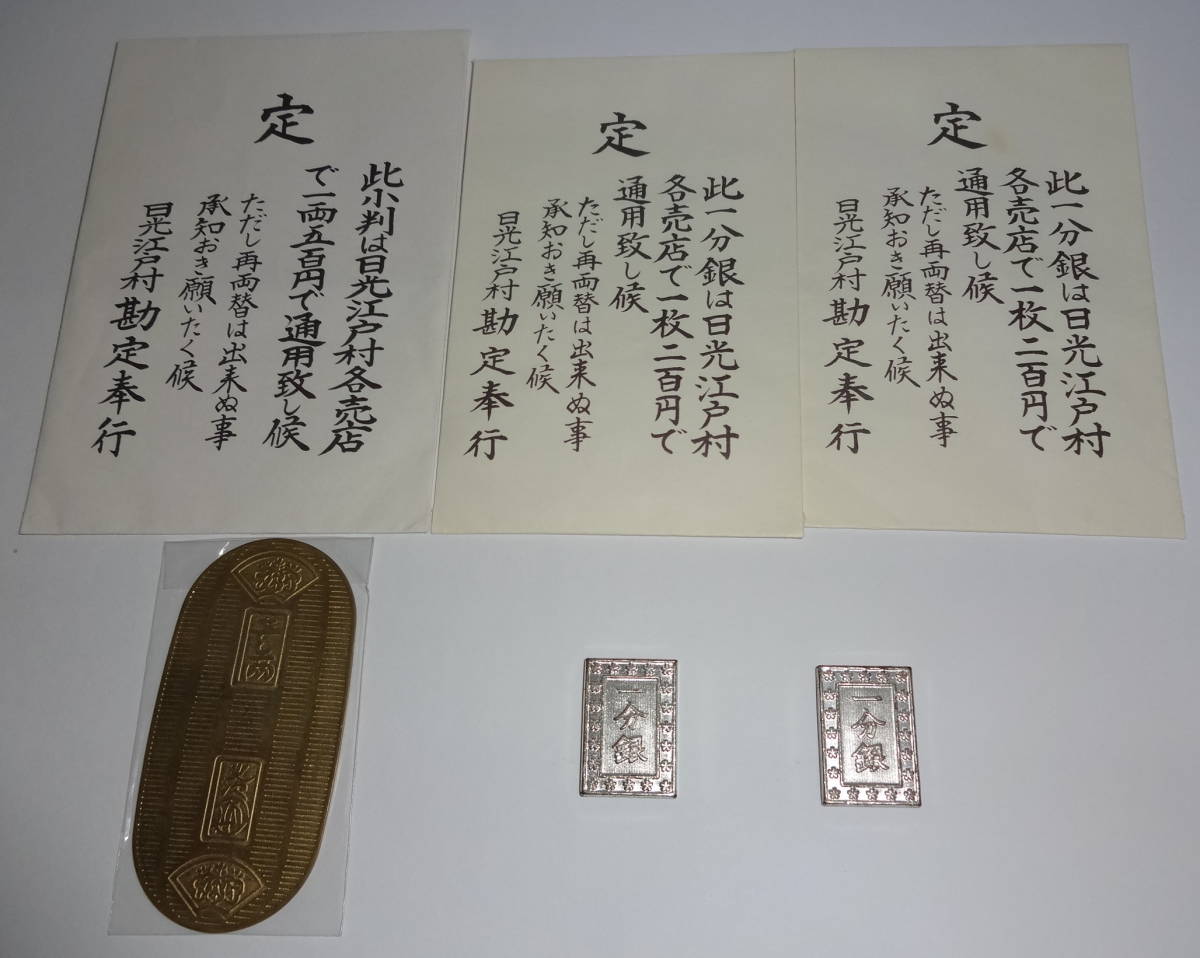 定
此小判は日光江戸村各売店
で一両五百円で通用致し候
ただし再両替は出来ぬ事
承知おき願いたく候
日光江戸村勘定奉行
定
此一分銀は日光江戸村
各売店で一枚二百円で
通用致し候
ただし再両替は出来ぬ事
承知おき願いたく候
日光江戸村勘定奉行
定
此一分銀は日光江戸村
各売店で一枚二百円で
通用致し候
ただし再両替は出来ぬ事
承知おき願いたく候
日光江戸村勘定奉行
一分銀
一分銀